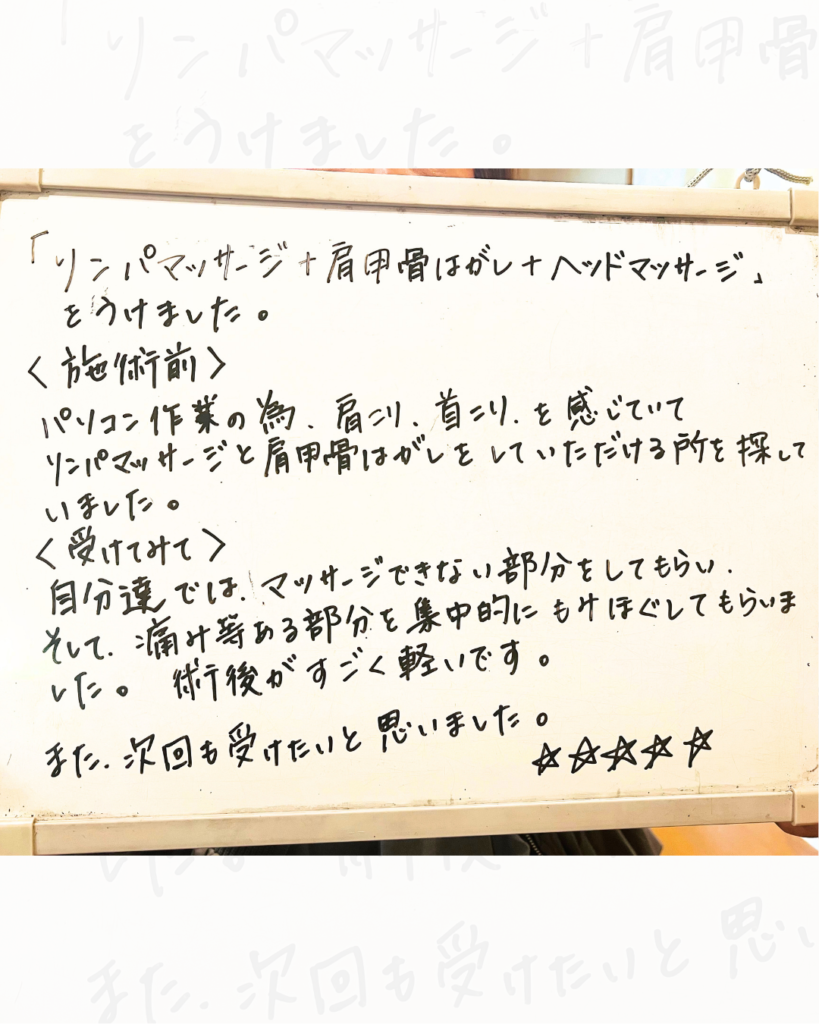 「リンパマッサージ+肩甲骨はがし+ヘッドマッサージ」
をうけました。
〈施術前〉
パソコン作業の為、肩こり、首こり、を感じていて
リンパマッサージと肩甲骨はがしをしていただける所を探して
いました。
〈受けてみて〉
自分達では、マッサージできない部分をしてもらい、
そして、痛み等ある部分を集中的にもみほぐしてもらいま
した。 術後がすごく軽いです。
また、次回も受けたいと思いました。
☆☆☆☆☆